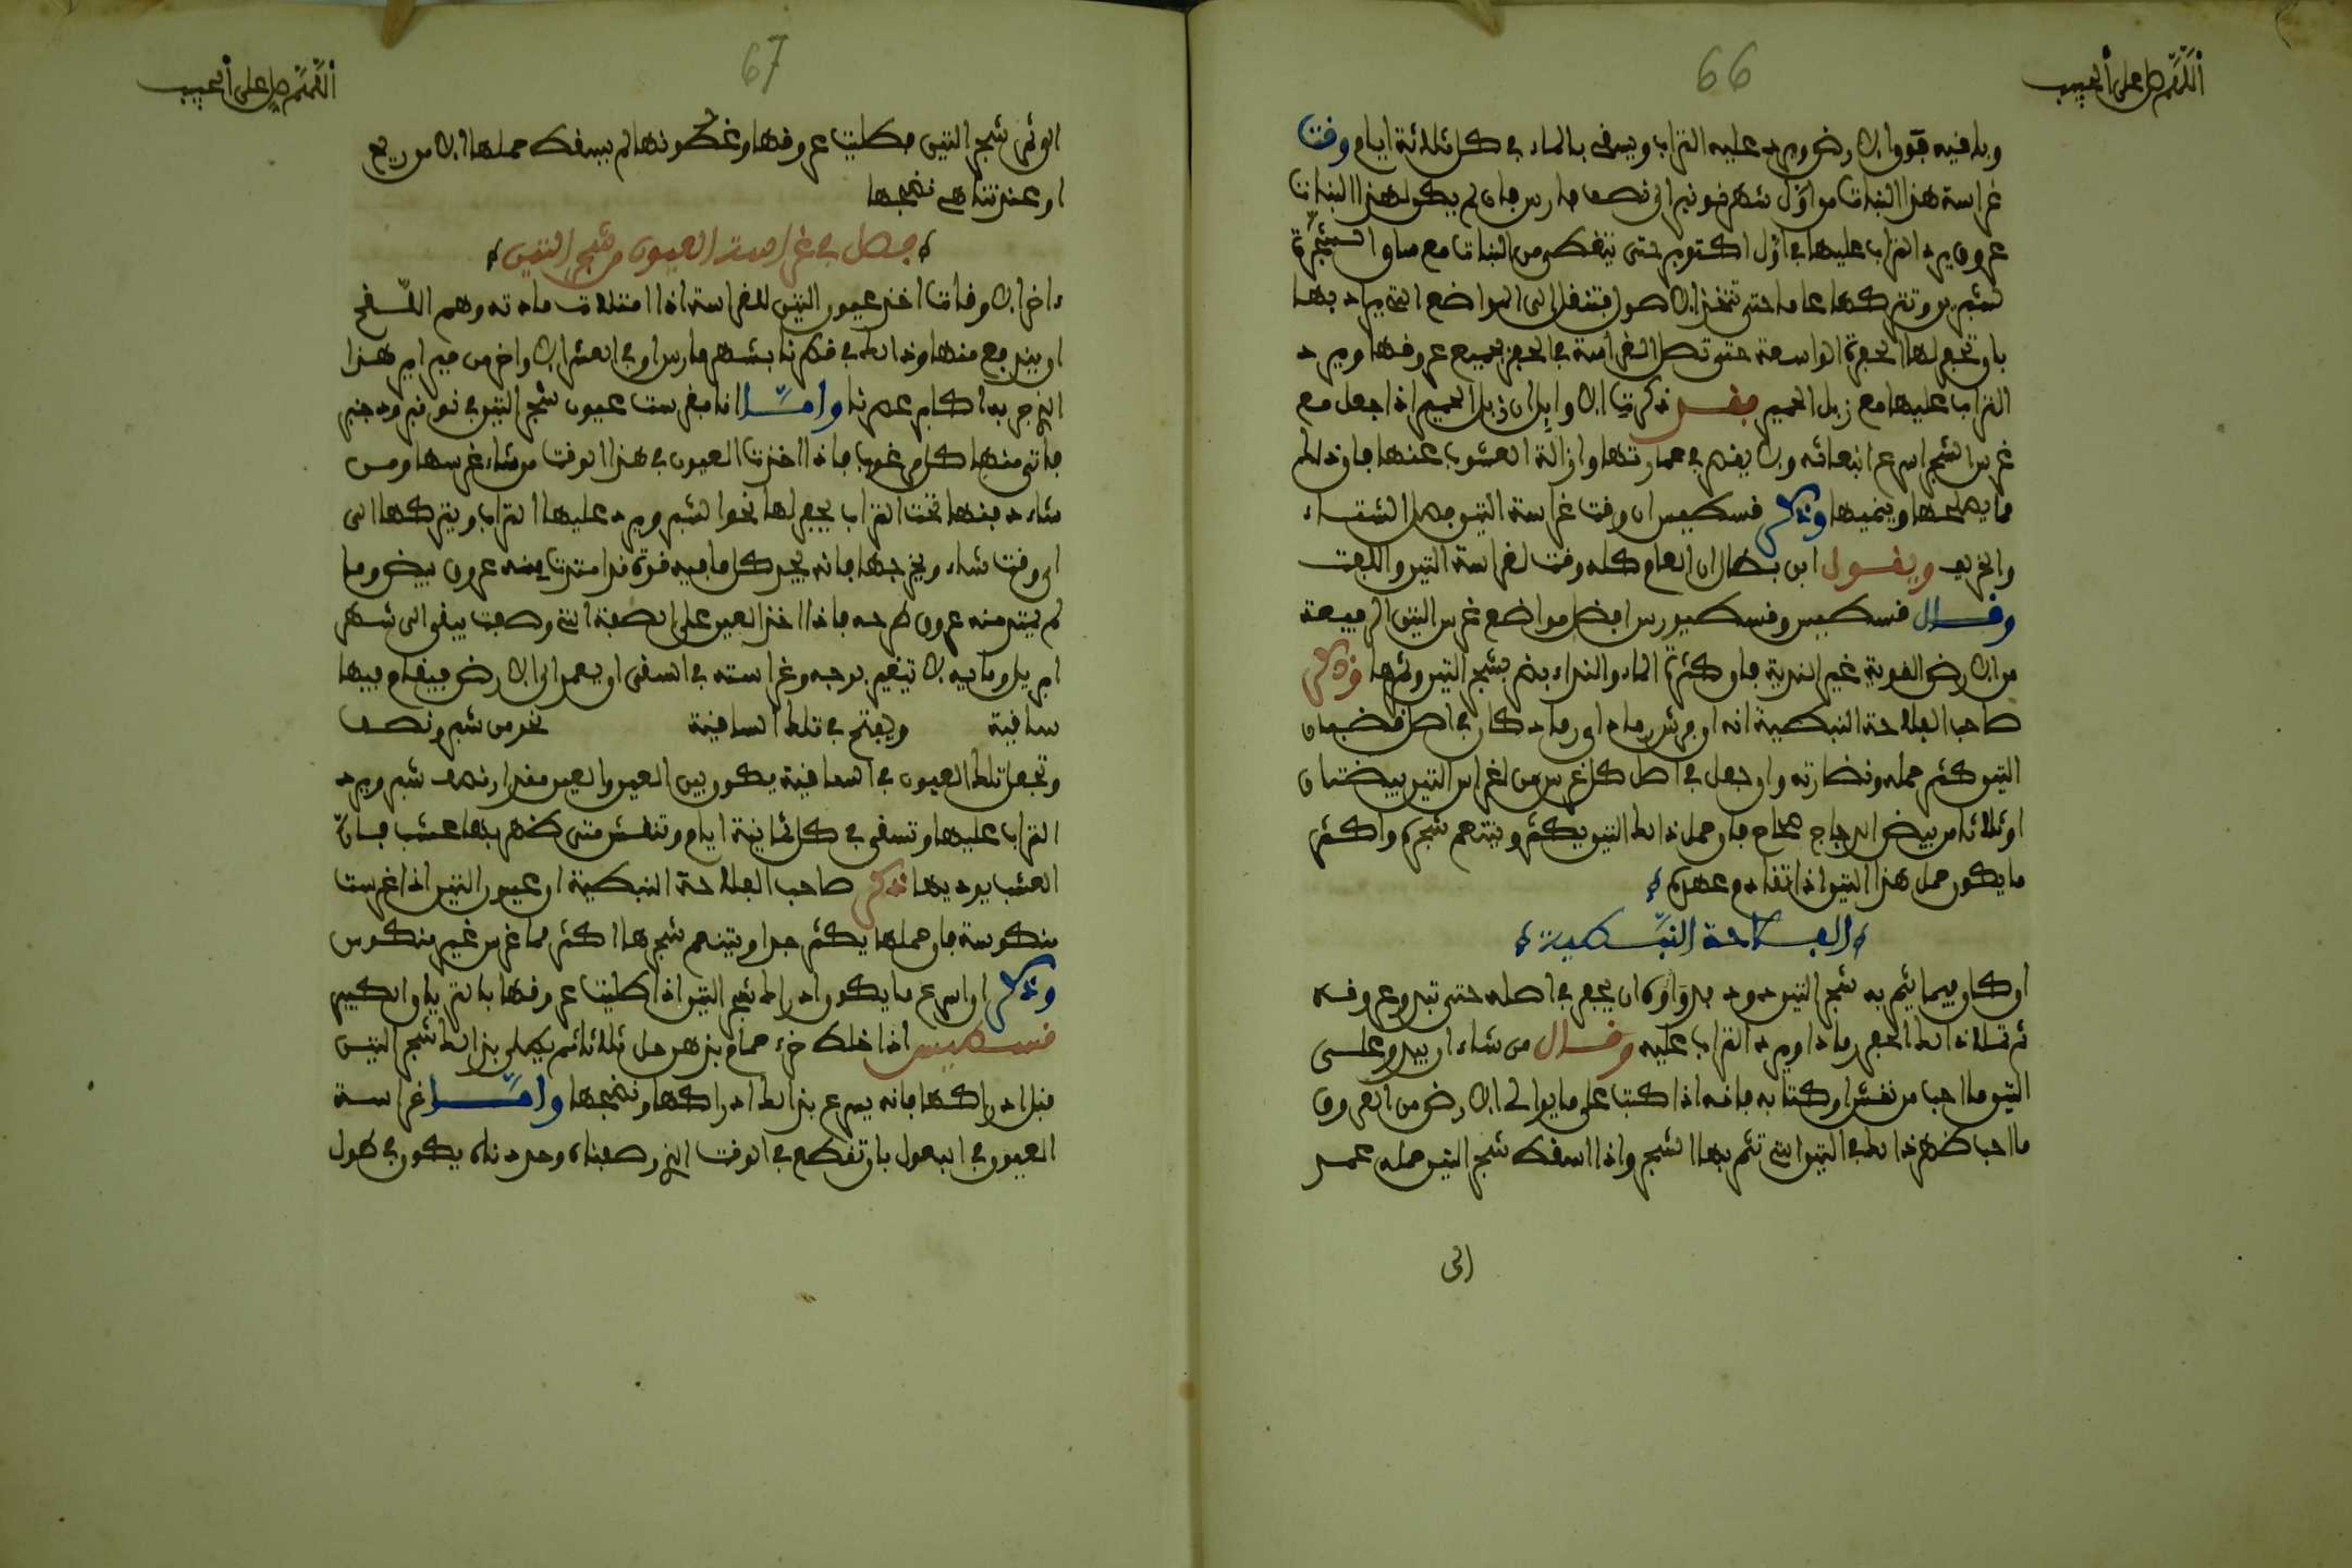 66
اللهم صل على الحبيب
وباقيه فوق الارض ويرد عليه التراب ويسقى بالماء في كل ثلاثة ايام وقت
غراسة هذا النبات من اول شهر نونبر الى نصف مارس فان لم يكن لهذا النبات
عروق يرد التراب عليها في اول اكتوبر حتى تنقطع من النبات مع ساق الشجرة
شبر وتتركها عاما حتى تتخذ الاصول فتنقل الى المواضع التي يراد بها
بان تجعل لها الحفرة الواسعة حتى تصل الغراسة في الحفر بجميع عروقها ويرد
التراب عليها مع زبل الحمير فقد ذكرت الاوايل ان زبل الحمير اذا جعل مع
غرس الشجر اسرع انبعاثه ولا يفتر في عمارتها وازالة العشوب عنها فان ذلك
مما يصلحها وينميها وذكر قسطيس ان وقت غراسة التين فصل الشتاء
والخريف ويقول ابن بطال ان العام كله وقت لغراسة التين واللفت
وقال قسطيس وقسطيورس افضل مواضع غرس التين الرفيعة
من الارض القوية غير الندية فان كثرة الماء والنداء يضر بشجر التين وثمرها وذكر
صاحب الفلاحة النبطية انه ان رش رماد اي رماد كان في اصل قضبان
التين كثر حمله ونضارته وان جعل في اصل كل غرس من اغراس التين بيضتان
او ثلاثا من بيض الدجاج صحاح فان حمل ذلك التين يكثر وينعم شجره واكثر
ما يكون حمل هذا التين اذا تقادم عهده
الفلاحة النبطية
ان كان فيما يثمر به شجر التين دود فدواؤه ان يحفر في اصله حتى تبدو عروقه
ثم تملا ذلك الحفر رمادا ويرد التراب عليه وقال من شاء ان يبدو على
التين ما احب من نقش او كتابه فانه اذا كتب على ما يوالي الارض من العروق
ما احب ظهر ذلك في التين التي تثمر بها الشجر واذا اسقط شجر التين حمله عمد
الى
67
اللهم صل على الحبيب
الى ثمر شجر التين فطليت عروقها وغصونها لم يسقط حملها الا من ريح
او عند تناهي نضجها
فصل في غراسة العيون من شجر التين
واخر الاوقات اخذ عيون التين للغراسة اذا امتلات مادته وهم اللقح
او يندفع منها وذلك في قطرنا بشهر مارس او في العشر الاواخر من فبراير هذا
الذي جربه اكابر عصرنا واما انا فغرست عيون شجر التين في نونبر ودجنبر
فاتى منها كل مرغوب فاذا اخذت العيون في هذا الوقت من شاء غرسها ومن
شاء دفنها تحت التراب يجعل لها نحو الشبر ويرد عليها التراب ويتركها الى
اي وقت شاء ويخرجها فانه يجد كل ما فيه قوة قد امتدت منه عروق بيض وما
لم تمتد منه عروق طرحه فاذا اخذ العين على الصفة التي وصفت يبقى الى شهر
ابريل وما فيه لا تيفير برجه وغراسته في السقي او يعمد الى الارض فيقام فيها
ساقية ويفتح في تلك الساقية نحو من شبر ونصف
وتجعل تلك العيون في الساقية يكون بين العين والعين مقدار نصف شبر ويرد
التراب عليها وتسقى في كل ثمانية ايام وتنقش متى ظهر بها عشب فان
العشب يوذيها ذكر صاحب الفلاحة النبطية ان عيون التين اذا غرست
منكوسة فان حملها يكثر جدا ويتنعم شجرها اكثر مما غرس غير منكوس
وذكر ان اسرع ما يكون ادراك شجر التين اذا طليت عروقها بالترياق الكبير
قسطيس اذا خلط خرء حمام بزهر خل ثلاثا ثم يطلى بذلك شجر التين
قبل ادراكها فانه يسرع بذلك ادراكها ونضجها واما غراسة
العيون في البعول بان تقطع في الوقت الذي وصفناه وحددناه يكون في طول